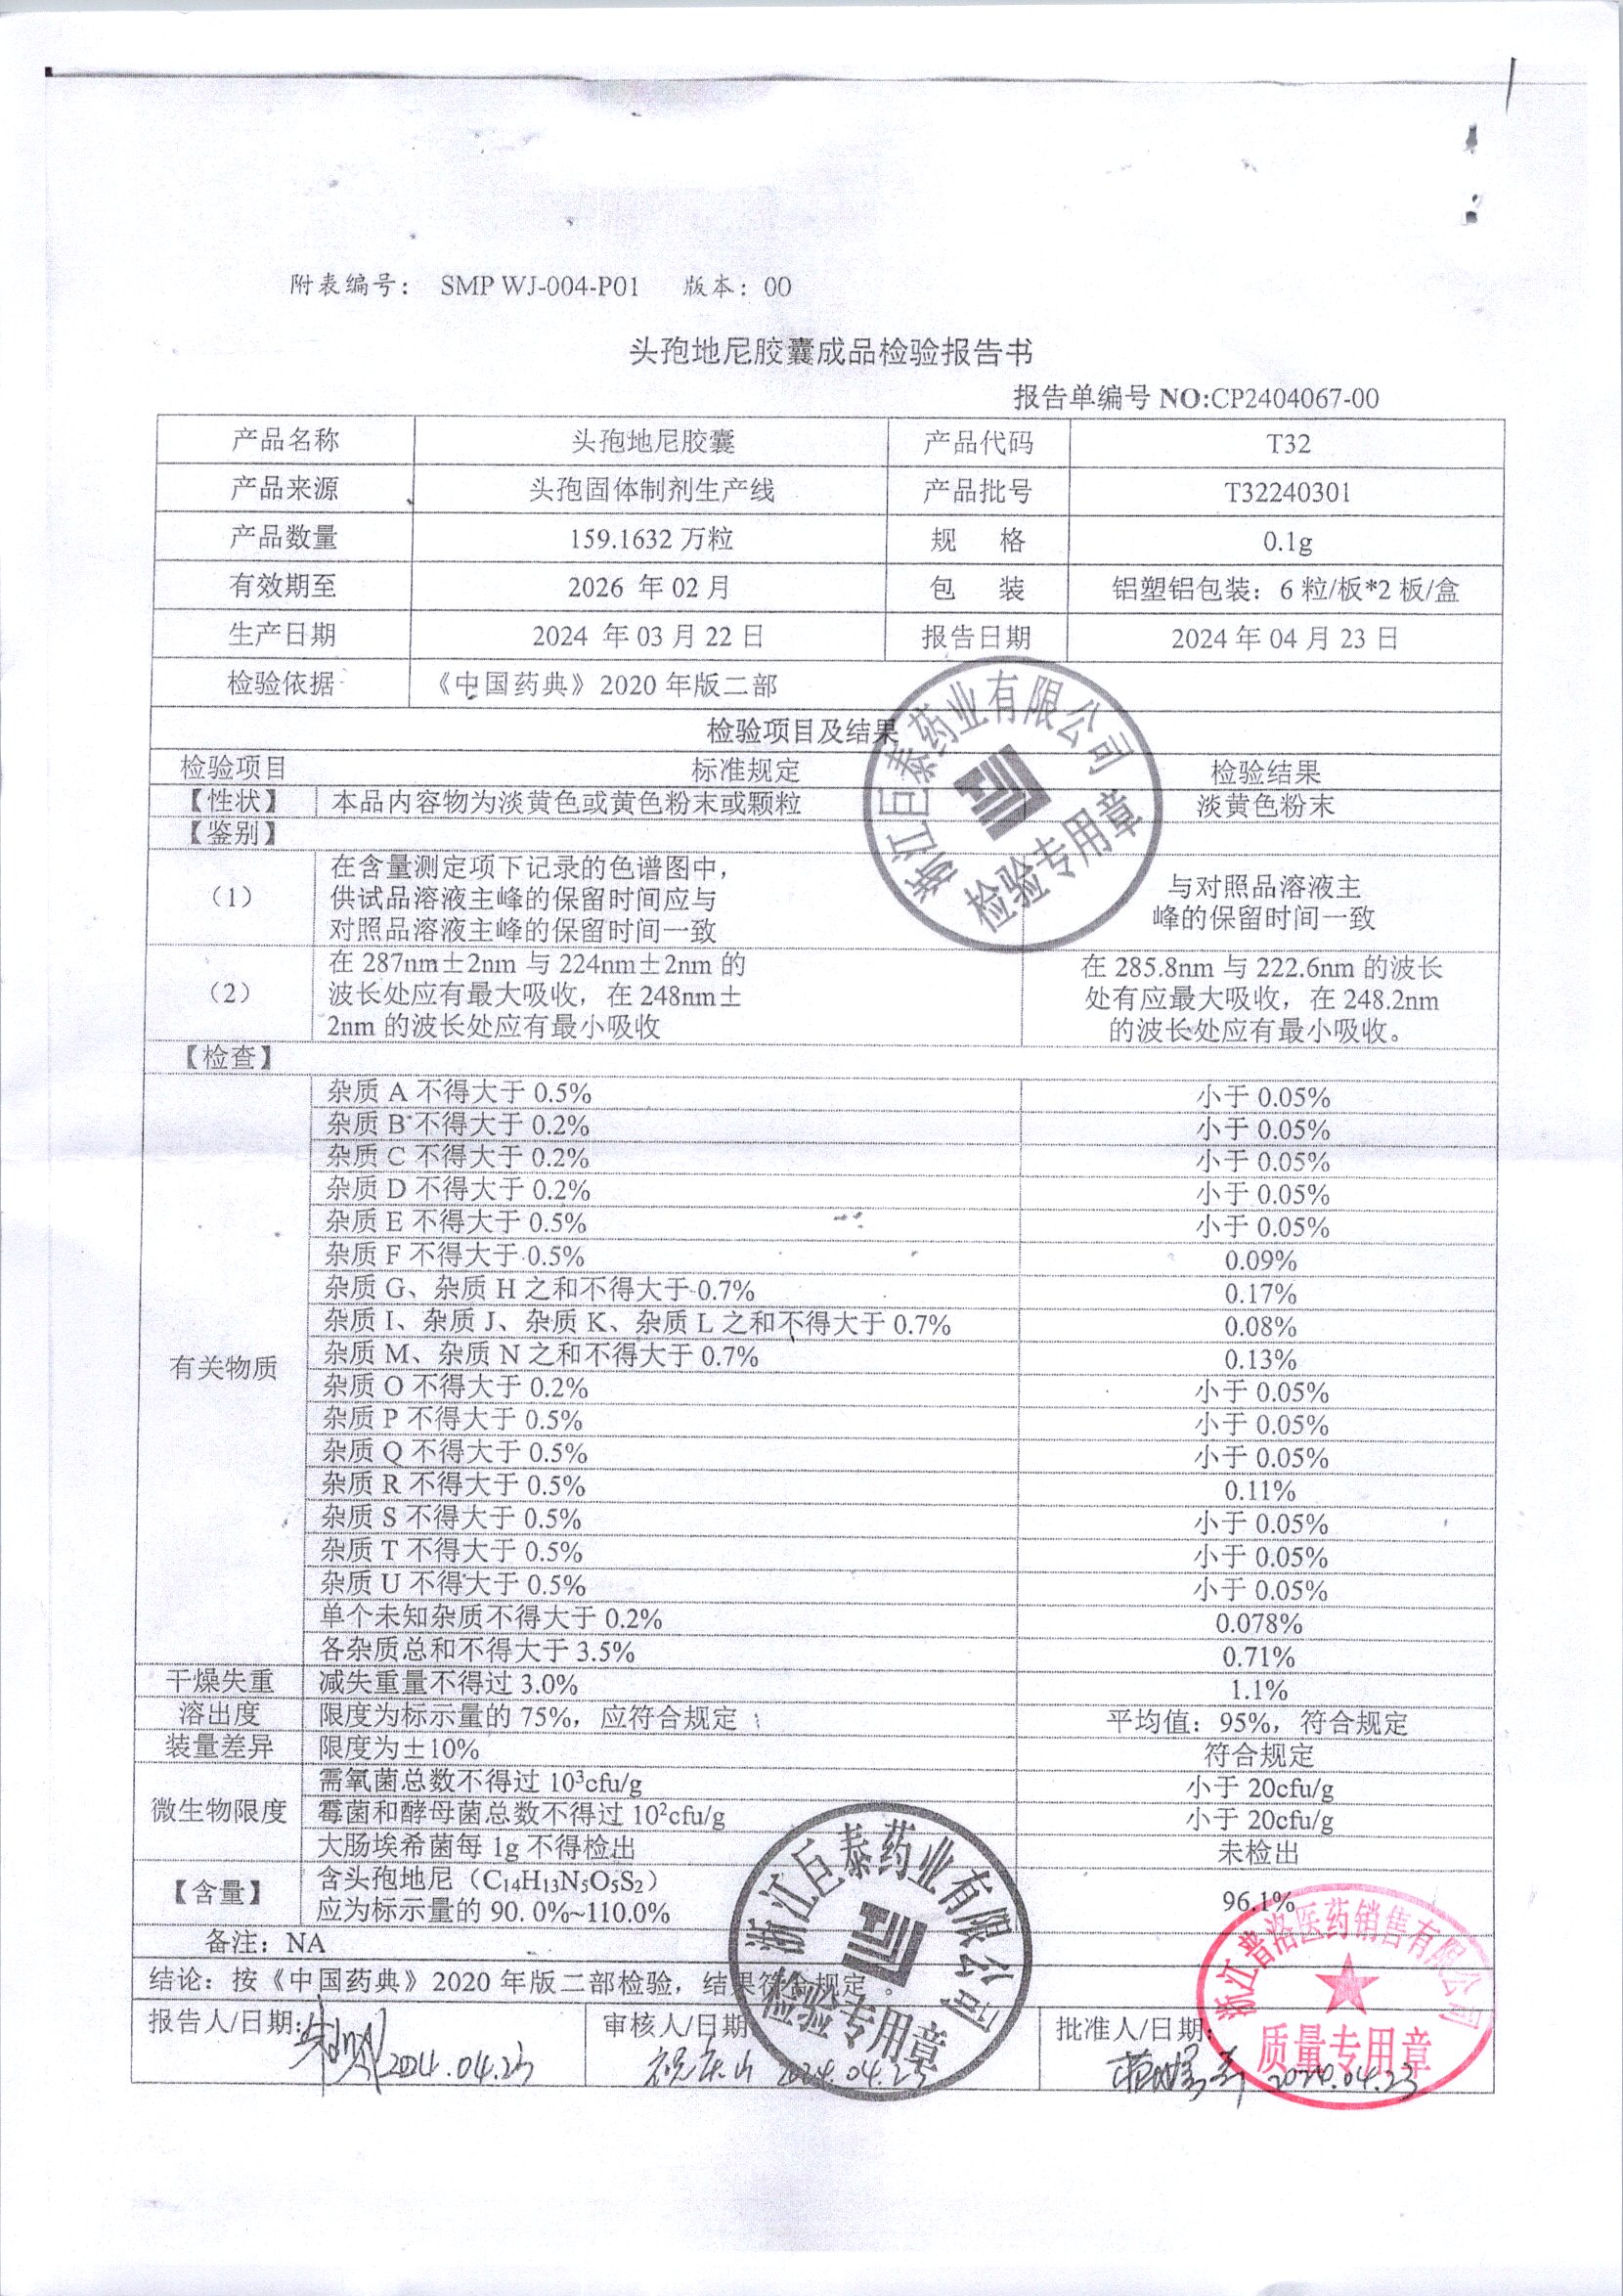 附表编号： SMP WJ-004-P01 版本：00
头孢地尼胶囊成品检验报告书
报告单编号 NO:CP2404067-00
产品名称 头孢地尼胶囊 产品代码 T32
产品来源 头孢固体制剂生产线 产品批号 T32240301
产品数量 159.1632 万粒 规 格 0.1g
有效期至 2026 年 02 月 包 装 铝塑铝包装：6 粒/板*2 板/盒
生产日期 2024 年 03 月 22 日 报告日期 2024 年 04 月 23 日
检验依据 《中国药典》2020 年版二部
检验项目及结果
检验项目 标准规定 检验结果
【性状】 本品内容物为淡黄色或黄色粉末或颗粒 淡黄色粉末
【鉴别】
（1） 在含量测定项下记录的色谱图中，
供试品溶液主峰的保留时间应与
对照品溶液主峰的保留时间一致
与对照品溶液主
峰的保留时间一致
（2） 在 287nm±2nm 与 224nm±2nm 的
波长处应有最大吸收，在 248nm±
2nm 的波长处应有最小吸收
在 285.8nm 与 222.6nm 的波长
处有应最大吸收，在 248.2nm
的波长处应有最小吸收。
【检查】
有关物质
杂质 A 不得大于 0.5% 小于 0.05%
杂质 B 不得大于 0.2% 小于 0.05%
杂质 C 不得大于 0.2% 小于 0.05%
杂质 D 不得大于 0.2% 小于 0.05%
杂质 E 不得大于 0.5% 小于 0.05%
杂质 F 不得大于 0.5% 0.09%
杂质 G、杂质 H 之和不得大于 0.7% 0.17%
杂质 I、杂质 J、杂质 K、杂质 L 之和不得大于 0.7% 0.08%
杂质 M、杂质 N 之和不得大于 0.7% 0.13%
杂质 O 不得大于 0.2% 小于 0.05%
杂质 P 不得大于 0.5% 小于 0.05%
杂质 Q 不得大于 0.5% 小于 0.05%
杂质 R 不得大于 0.5% 0.11%
杂质 S 不得大于 0.5% 小于 0.05%
杂质 T 不得大于 0.5% 小于 0.05%
杂质 U 不得大于 0.5% 小于 0.05%
单个未知杂质不得大于 0.2% 0.078%
各杂质总和不得大于 3.5% 0.71%
干燥失重 减失重量不得过 3.0% 1.1%
溶出度 限度为标示量的 75%，应符合规定 平均值：95%，符合规定
装量差异 限度为±10% 符合规定
微生物限度
需氧菌总数不得过 10³cfu/g 小于 20cfu/g
霉菌和酵母菌总数不得过 10²cfu/g 小于 20cfu/g
大肠埃希菌每 1g 不得检出 未检出
【含量】 含头孢地尼（C₁₄H₁₃N₅O₅S₂）
应为标示量的 90.0%~110.0%
96.1%
备注：NA
结论：按《中国药典》2020 年版二部检验，结果符合规定。
报告人/日期: 2024.04.23 审核人/日期 2024.04.23 批准人/日期: 2024.04.23
浙江巨泰药业有限公司
检验专用章
浙江巨泰药业有限公司
检验专用章
浙江普洛医药销售有限公司
质量专用章